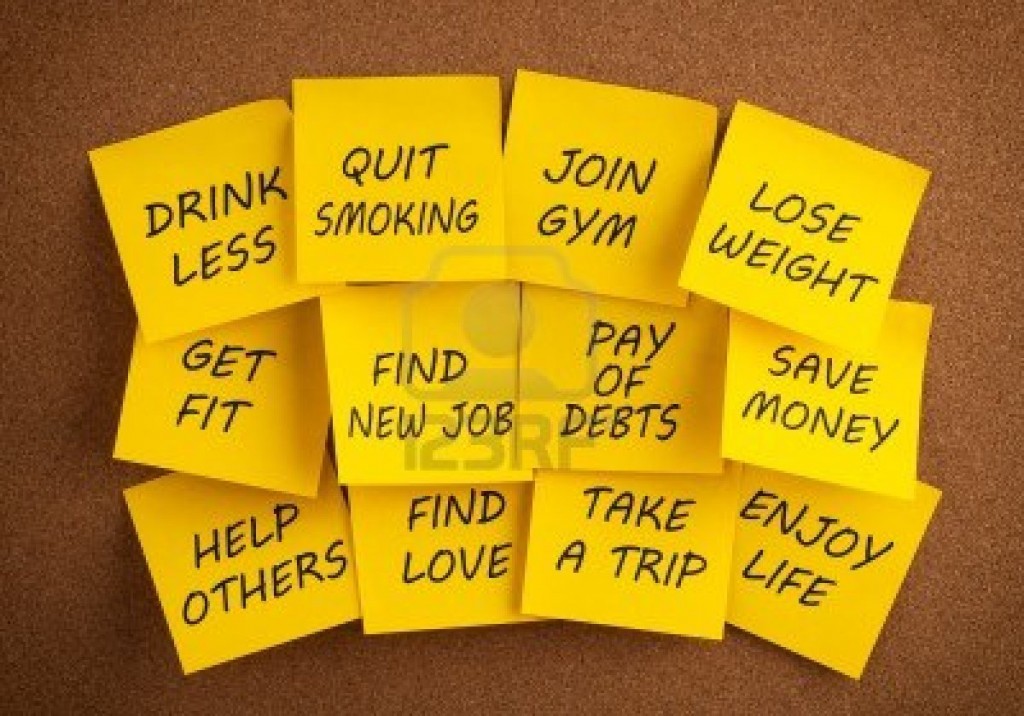 DRINK
LESS
QUIT
SMOKING
JOIN
GYM
LOSE
WEIGHT
GET
FIT
FIND
NEW JOB
PAY
OF
DEBTS
SAVE
MONEY
HELP
OTHERS
FIND
LOVE
TAKE
A TRIP
ENJOY
LIFE
123RF